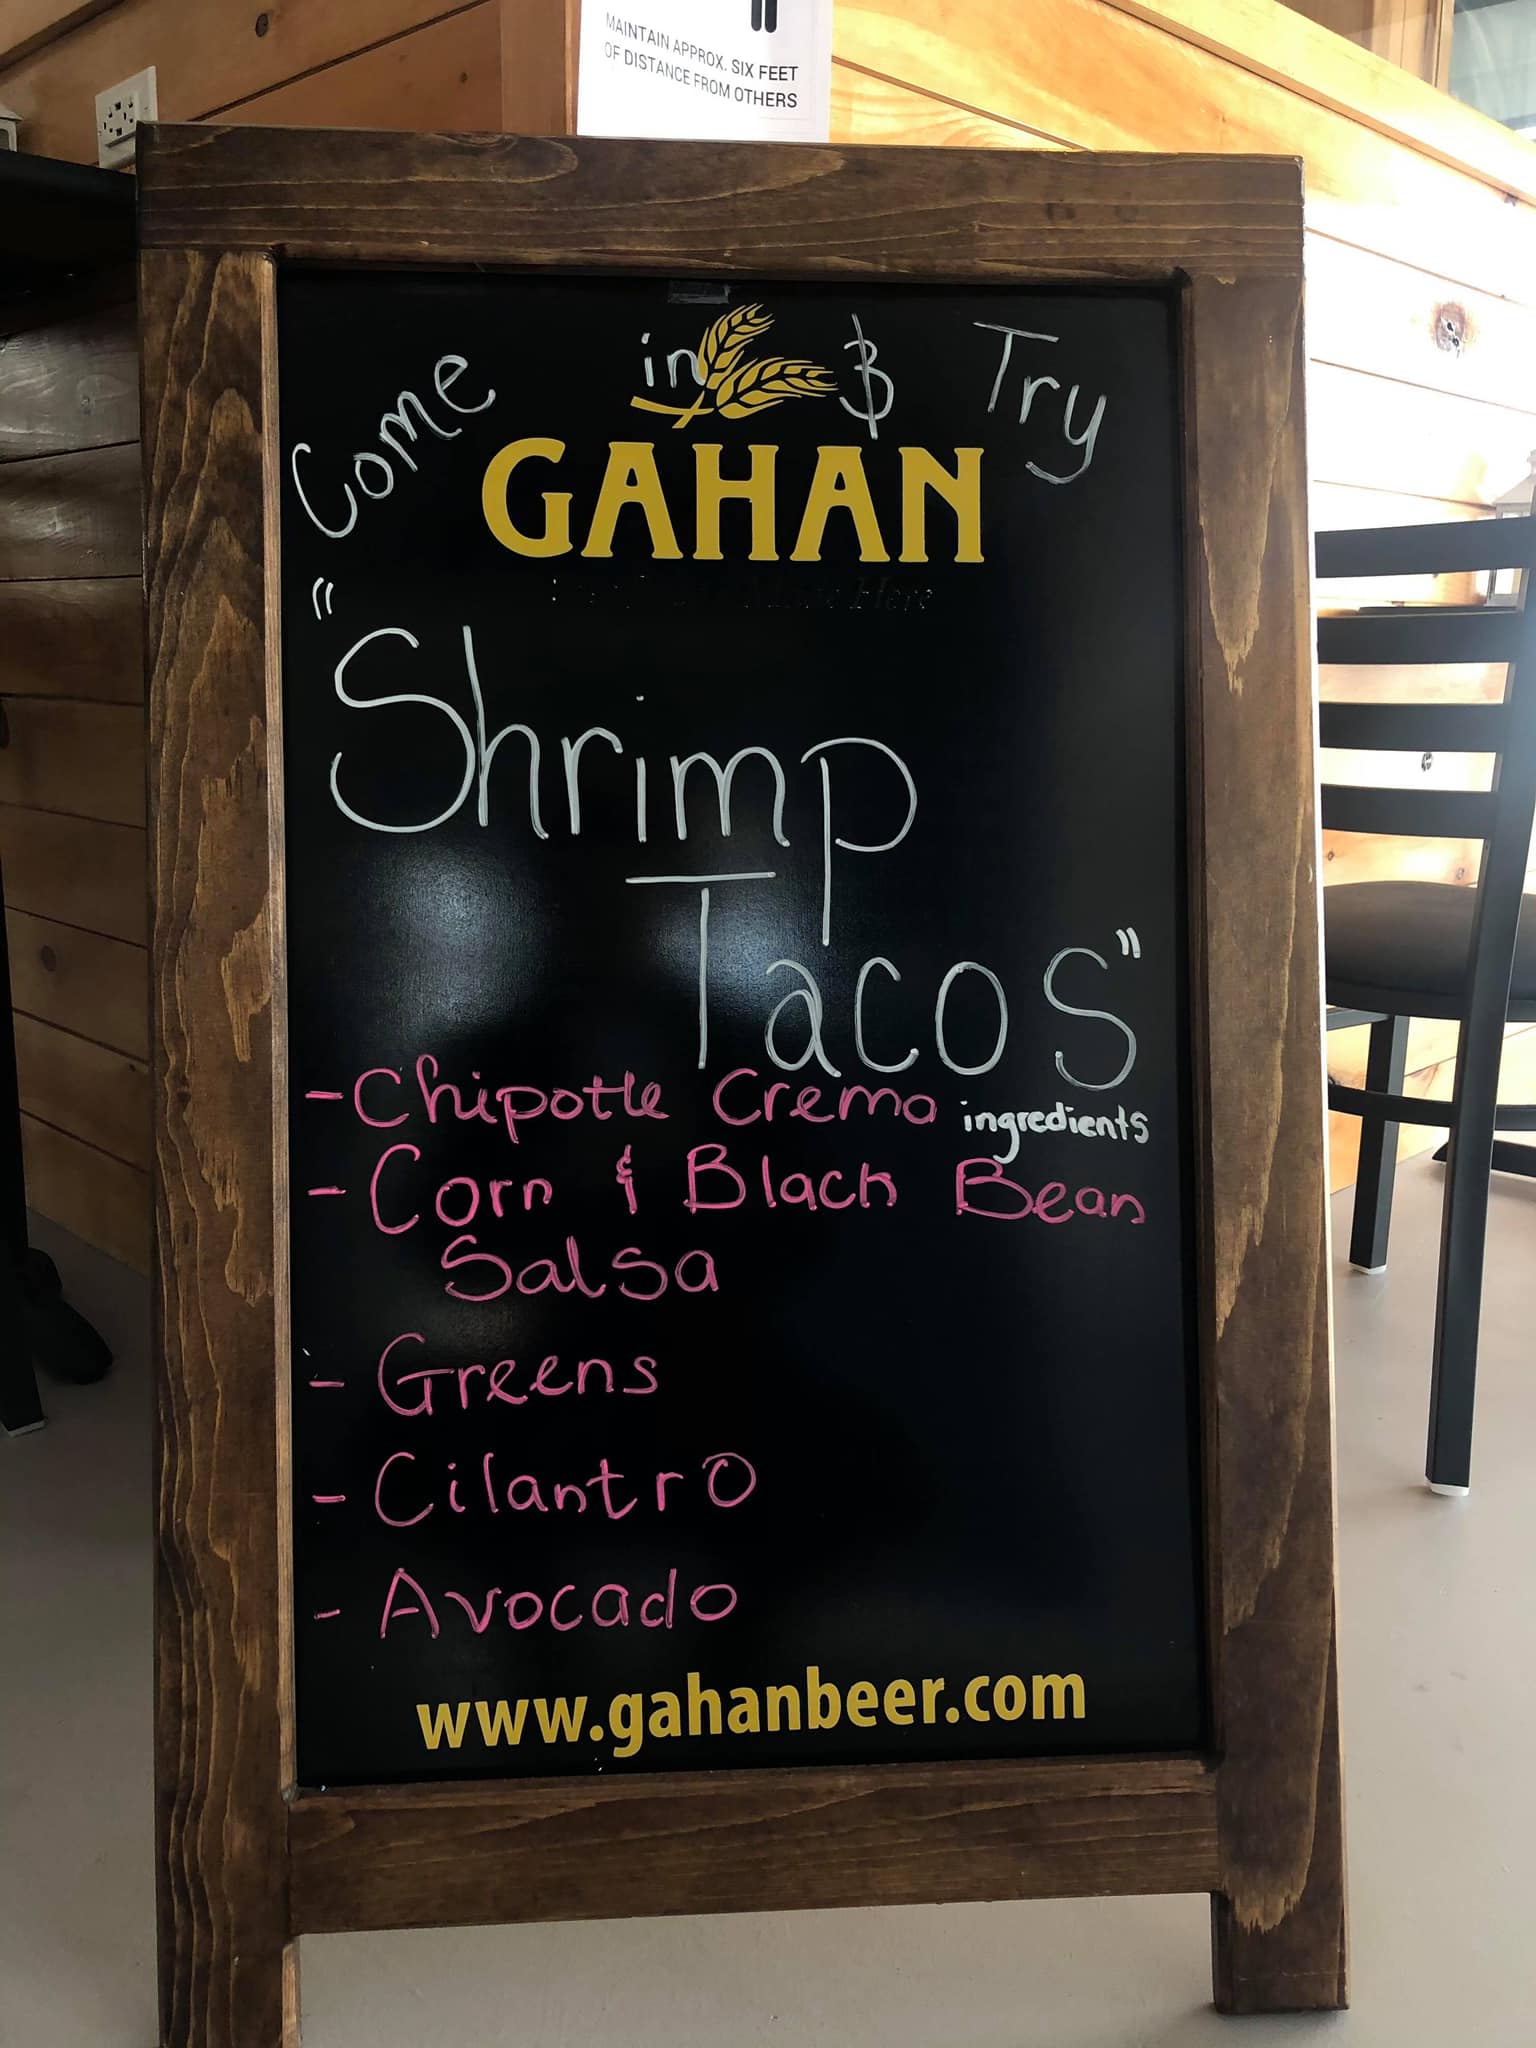 MAINTAIN APPROX. SIX FEET
OF DISTANCE FROM OTHERS
Come in & Try
GAHAN
Here
"Shrimp
Tacos"
- Chipotle Crema ingredients
- Corn & Black Bean
Salsa
- Greens
- Cilantro
- Avocado
www.gahanbeer.com